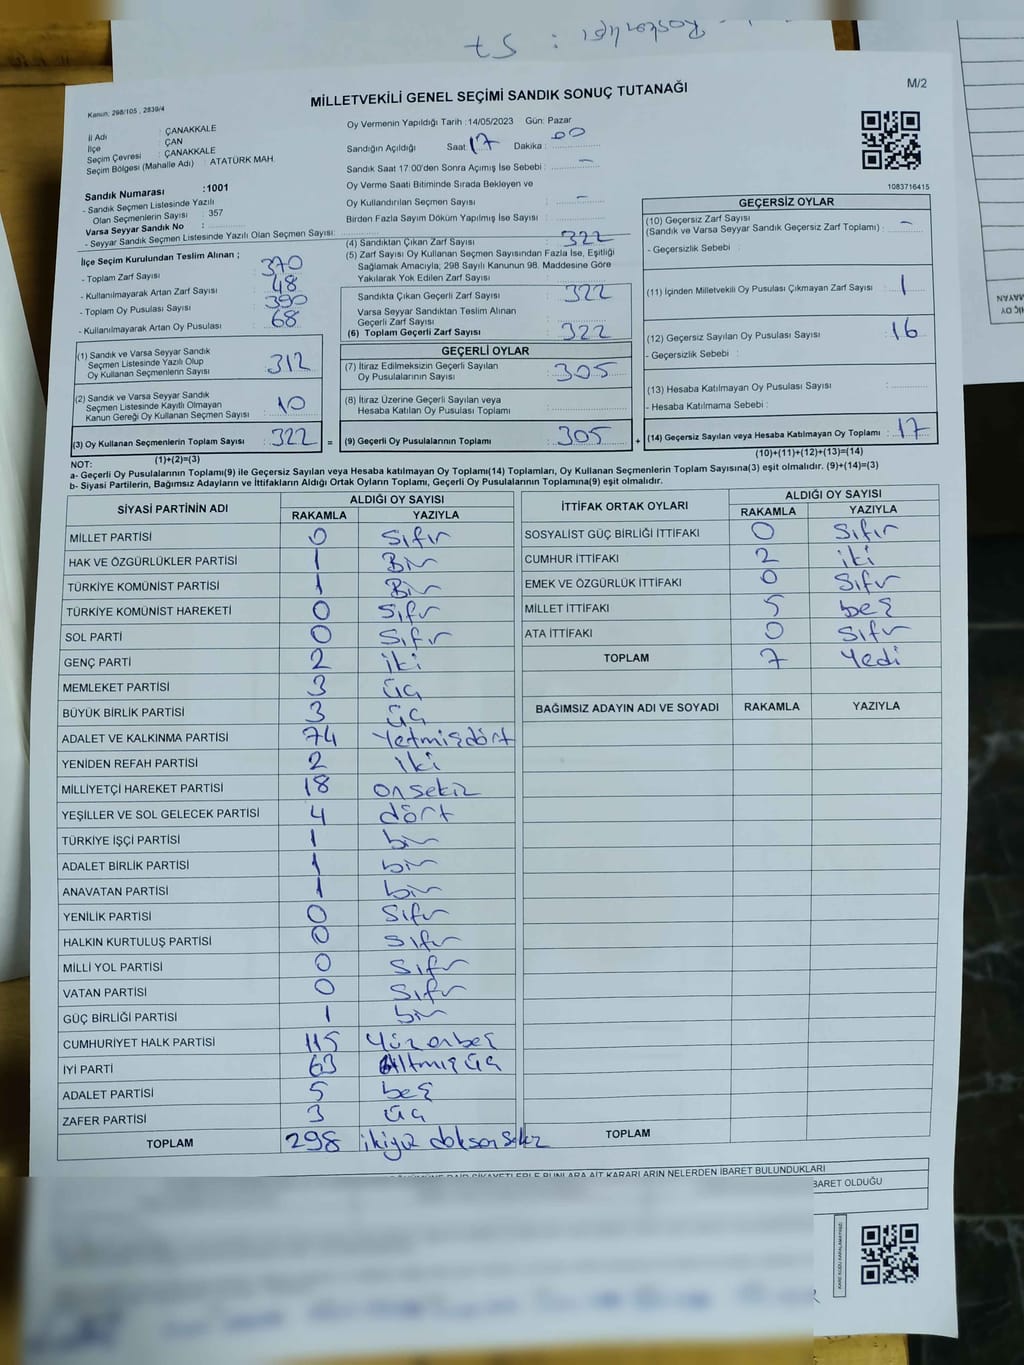 MİLLETVEKİLİ GENEL SEÇİMİ SANDIK SONUÇ TUTANAĞI
M/2
Kanun: 298/105 , 2839/4
İl Adı : ÇANAKKALE
İlçe : ÇAN
Seçim Çevresi : ÇANAKKALE
Seçim Bölgesi (Mahalle Adı) : ATATÜRK MAH.
Sandık Numarası :1001
- Sandık Seçmen Listesinde Yazılı
Olan Seçmenlerin Sayısı : 357
Varsa Seyyar Sandık No :
- Seyyar Sandık Seçmen Listesinde Yazılı Olan Seçmen Sayısı:
İlçe Seçim Kurulundan Teslim Alınan ;
- Toplam Zarf Sayısı : 370
- Kullanılmayarak Artan Zarf Sayısı : 48
- Toplam Oy Pusulası Sayısı : 390
- Kullanılmayarak Artan Oy Pusulası : 68
(1) Sandık ve Varsa Seyyar Sandık
Seçmen Listesinde Yazılı Olup
Oy Kullanan Seçmenlerin Sayısı : 312
(2) Sandık ve Varsa Seyyar Sandık
Seçmen Listesinde Kayıtlı Olmayan
Kanun Gereği Oy Kullanan Seçmen Sayısı : 10
(3) Oy Kullanan Seçmenlerin Toplam Sayısı : 322
(1)+(2)=(3)
Oy Vermenin Yapıldığı Tarih :14/05/2023 Gün: Pazar
Sandığın Açıldığı Saat: 17 Dakika : 00
Sandık Saat 17:00'den Sonra Açımış İse Sebebi : -
Oy Verme Saati Bitiminde Sırada Bekleyen ve
Oy Kullandırılan Seçmen Sayısı : -
Birden Fazla Sayım Döküm Yapılmış İse Sayısı :
(4) Sandıktan Çıkan Zarf Sayısı : 322
(5) Zarf Sayısı Oy Kullanan Seçmen Sayısından Fazla İse, Eşitliği
Sağlamak Amacıyla, 298 Sayılı Kanunun 98. Maddesine Göre
Yakılarak Yok Edilen Zarf Sayısı :
Sandıkta Çıkan Geçerli Zarf Sayısı : 322
Varsa Seyyar Sandıktan Teslim Alınan
Geçerli Zarf Sayısı :
(6) Toplam Geçerli Zarf Sayısı : 322
GEÇERLİ OYLAR
(7) İtiraz Edilmeksizin Geçerli Sayılan
Oy Pusulalarının Sayısı : 305
(8) İtiraz Üzerine Geçerli Sayılan veya
Hesaba Katılan Oy Pusulası Toplamı :
= (9) Geçerli Oy Pusulalarının Toplamı : 305 +
1083716415
GEÇERSİZ OYLAR
(10) Geçersiz Zarf Sayısı
(Sandık ve Varsa Seyyar Sandık Geçersiz Zarf Toplamı) : -
- Geçersizlik Sebebi :
(11) İçinden Milletvekili Oy Pusulası Çıkmayan Zarf Sayısı : 1
(12) Geçersiz Sayılan Oy Pusulası Sayısı : 16
- Geçersizlik Sebebi :
(13) Hesaba Katılmayan Oy Pusulası Sayısı :
- Hesaba Katılmama Sebebi :
(14) Geçersiz Sayılan veya Hesaba Katılmayan Oy Toplamı : 17
(10)+(11)+(12)+(13)=(14)
NOT:
a- Geçerli Oy Pusulalarının Toplamı(9) ile Geçersiz Sayılan veya Hesaba katılmayan Oy Toplamı(14) Toplamları, Oy Kullanan Seçmenlerin Toplam Sayısına(3) eşit olmalıdır. (9)+(14)=(3)
b- Siyasi Partilerin, Bağımsız Adayların ve İttifakların Aldığı Ortak Oyların Toplamı, Geçerli Oy Pusulalarının Toplamına(9) eşit olmalıdır.
SİYASİ PARTİNİN ADI ALDIĞI OY SAYISI
RAKAMLA YAZIYLA
MİLLET PARTİSİ 0 Sıfır
HAK VE ÖZGÜRLÜKLER PARTİSİ 1 Bir
TÜRKİYE KOMÜNİST PARTİSİ 1 Bir
TÜRKİYE KOMÜNİST HAREKETİ 0 Sıfır
SOL PARTİ 0 Sıfır
GENÇ PARTİ 2 iki
MEMLEKET PARTİSİ 3 üç
BÜYÜK BİRLİK PARTİSİ 3 üç
ADALET VE KALKINMA PARTİSİ 74 Yetmişdört
YENİDEN REFAH PARTİSİ 2 iki
MİLLİYETÇİ HAREKET PARTİSİ 18 onsekiz
YEŞİLLER VE SOL GELECEK PARTİSİ 4 dört
TÜRKİYE İŞÇİ PARTİSİ 1 bir
ADALET BİRLİK PARTİSİ 1 bir
ANAVATAN PARTİSİ 1 bir
YENİLİK PARTİSİ 0 Sıfır
HALKIN KURTULUŞ PARTİSİ 0 Sıfır
MİLLİ YOL PARTİSİ 0 Sıfır
VATAN PARTİSİ 0 Sıfır
GÜÇ BİRLİĞİ PARTİSİ 1 bir
CUMHURİYET HALK PARTİSİ 115 Yüz onbeş
İYİ PARTİ 63 Altmış üç
ADALET PARTİSİ 5 beş
ZAFER PARTİSİ 3 üç
TOPLAM 298 ikiyüz doksan sekiz
İTTİFAK ORTAK OYLARI ALDIĞI OY SAYISI
RAKAMLA YAZIYLA
SOSYALİST GÜÇ BİRLİĞİ İTTİFAKI 0 Sıfır
CUMHUR İTTİFAKI 2 iki
EMEK VE ÖZGÜRLÜK İTTİFAKI 0 Sıfır
MİLLET İTTİFAKI 5 beş
ATA İTTİFAKI 0 Sıfır
TOPLAM 7 Yedi
BAĞIMSIZ ADAYIN ADI VE SOYADI RAKAMLA YAZIYLA
TOPLAM
AİT KARARLARIN NELERDEN İBARET BULUNDUKLARI
BARET OLDUĞU